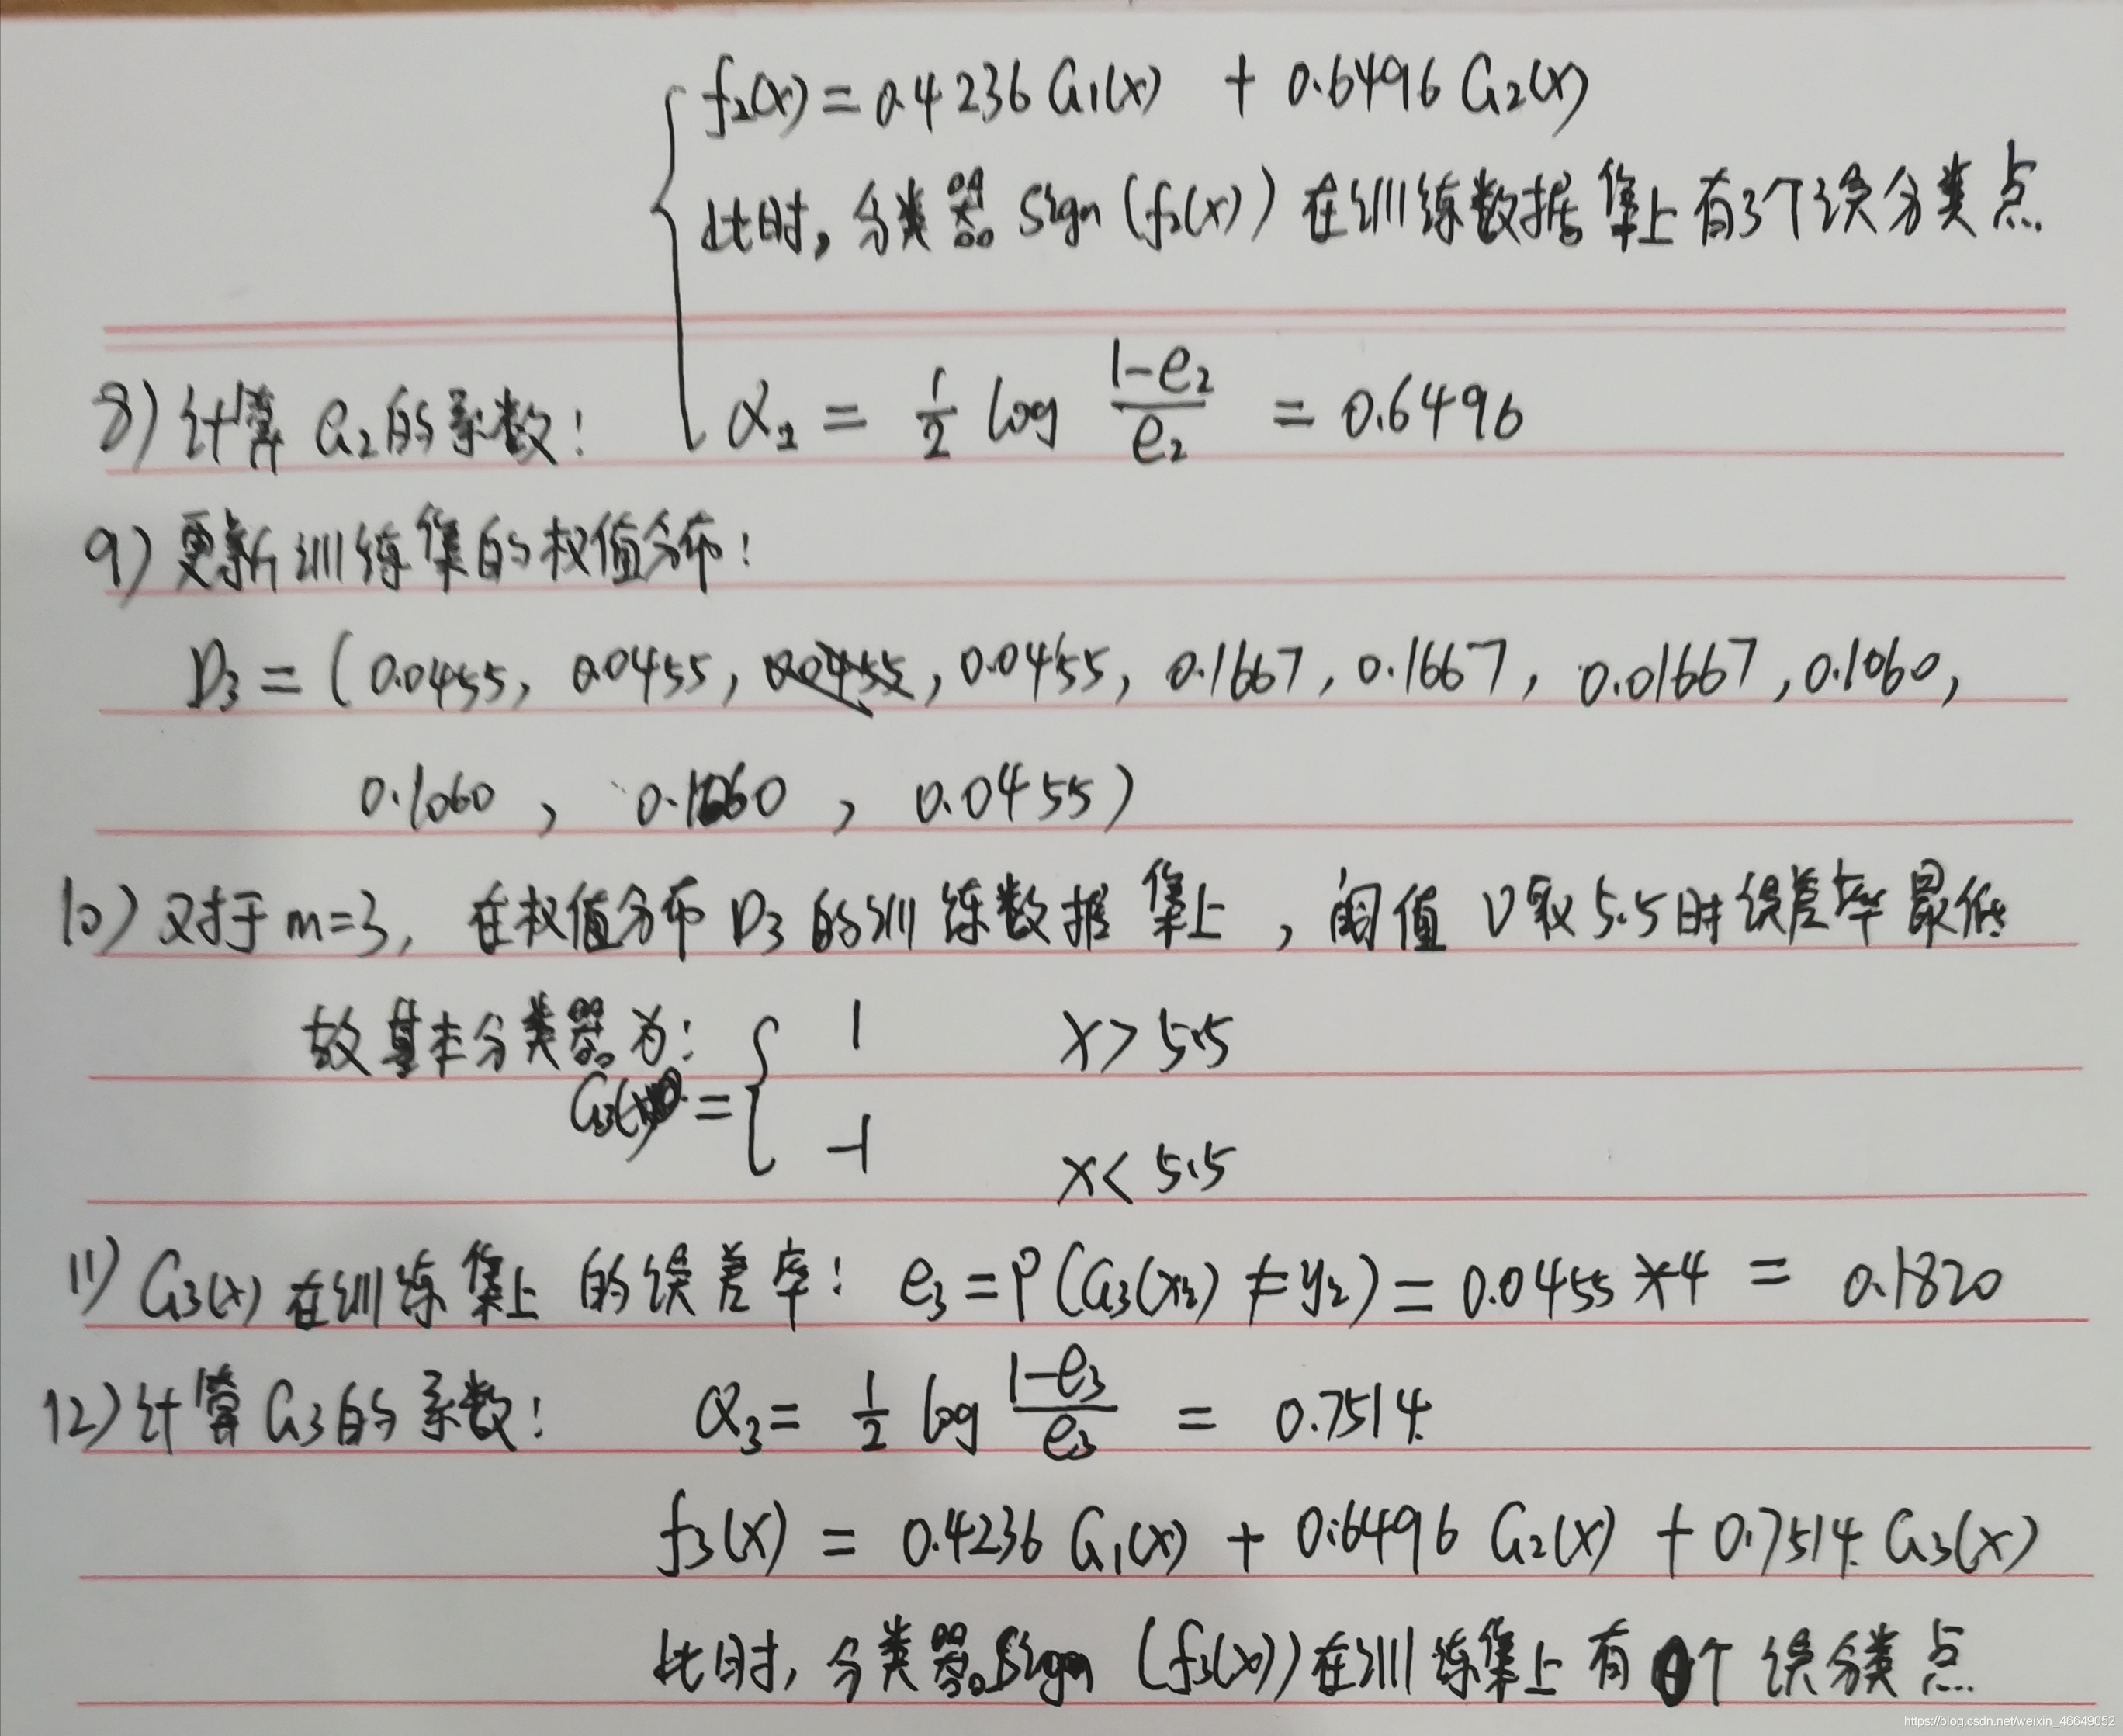 f₂(x) = 0.4236 G₁(x) + 0.6496 G₂(x)
此时, 分类器 Sign (f₂(x)) 在训练数据集上有3个误分类点.
8) 计算 G₂的系数: α₂ = 1/2 log (1-e₂)/e₂ = 0.6496
9) 更新训练集的权值分布:
D₃ = (0.0455, 0.0455, 0.0455, 0.0455, 0.1667, 0.1667, 0.01667, 0.1060,
0.1060, 0.1060, 0.0455)
10) 对于 m=3, 在权值分布 D₃ 的训练数据集上, 阈值 v取 5.5时误差率最低
故基本分类器为: { 1 x > 5.5
G₃(x) =
-1 x < 5.5
11) G₃(x) 在训练集上的误差率: e₃ = P(G₃(x₂) ≠ y₂) = 0.0455 * 4 = 0.1820
12) 计算 G₃的系数: α₃ = 1/2 log (1-e₃)/e₃ = 0.7514
f₃(x) = 0.4236 G₁(x) + 0.6496 G₂(x) + 0.7514 G₃(x)
此时, 分类器 Sign (f₃(x)) 在训练集上有0个误分类点.
https://blog.csdn.net/weixin_46649052